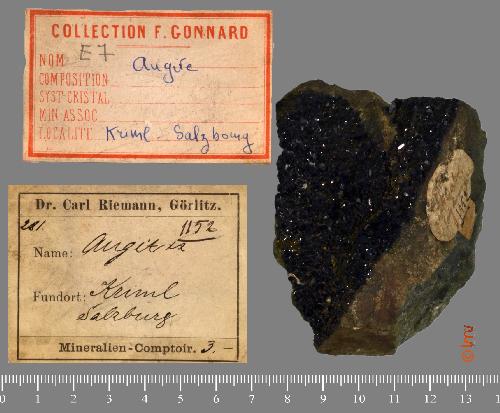 COLLECTION F. GONNARD
E7
NOM Augite
COMPOSITION
SYST-CRISTAL
MIN-ASSOC
LOCALITÉ Kriml - Salzbourg
Dr. Carl Riemann, Görlitz.
281. 1152
Name: Augit xx
Fundort: Kriml
Salzburg
Mineralien-Comptoir. 3.-
0 1 2 3 4 5 6 7 8 9 10 11 12 13 1